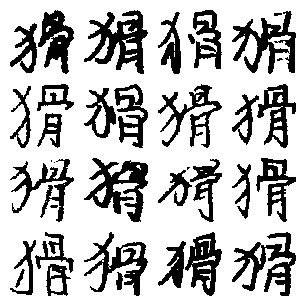 猾猾猾猾
猾猾猾猾
猾猾猾猾
猾猾猾猾